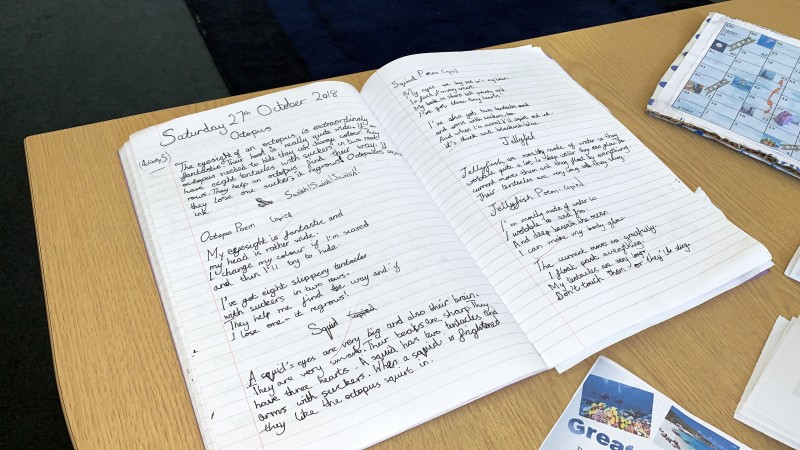 Saturday 27th October 2018
Octopus
The eyesight of an octopus is extraordinarily
fantastic. Their head is really quite wide. If an
octopus needed to hide they can change colour. They
have eight tentacles with suckers in two neat
rows. They help an octopus find their way. If
they lose one suckers it regrows!
ink.
Swish! Swish! Swish!
Octopus Poem (copied)
My eyesight is fantastic and
my head is rather wide.
I change my colour if I'm scared
and then I'll try to hide.
I've got eight slippery tentacles
with suckers in two rows.
They help me find the way and if
I lose one - it regrows!
Squid
A squid's eyes are very big and also their brain.
They are very smart. Their beaks are sharp. They
have three hearts. A squid has two tentacles and
arms with suckers. When a squid is frightened
they like the octopus squirts in.
Squid Poem (copied)
My eyes are big and so's my brain
In fact, I'm very smart.
My beak is sharp
I've got three tiny hearts!
I've also got two tentacles and
and arms with suckers, too.
And when I'm scared I'll squirt out ink
It's thick and
Jellyfish
Jellyfish are mostly made of water so they
wobble quite a lot.
current moves them and they float by everything.
Their tentacles are very long and they sting.
Jellyfish Poem (copied)
I'm mostly made of water so
I wobble to and fro.
And deep beneath the ocean
I can make my body glow.
The current moves me gracefully.
I float past everything.
My tentacles are very long.
Don't touch them or they'll sting.
Great